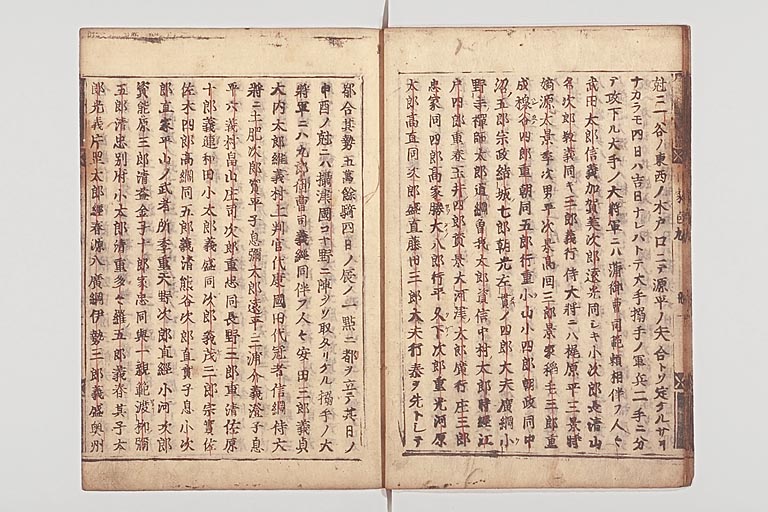 尅ニ一谷ノ東西ノ木戸口ニテ源平ノ矢合トソ定タルサ
ナカラモ四日ハ吉日ナレハトテ大手搦手ノ軍兵二手ニ分
テ攻下ル大手ノ大将軍ニハ蒲御曹司範頼相伴フ人々
武田太郎信義加賀美次郎遠光同シキ小次郎長清山
名次郎教義同キ三郎義行侍大将ニハ梶原平三景時
嫡源太景季次男平次景高同三郎景家稲毛三郎重
成榛谷四郎重朝同五郎行重小山小四郎朝政同中
沼五郎宗政結城七郎朝光佐貫ノ四郎大夫廣綱小
野寺禅師太郎道綱曽我太郎資信中村太郎時経江
戸四郎重春玉井四郎資景大河津太郎廣行庄三郎
忠家同四郎高家勝大八郎行平久下次郎重光河原
太郎高直同次郎盛直藤田三郎大夫行泰ヲ先トシテ
都合其勢五萬餘騎四日ノ辰ノ一點ニ都ヲ立テ其日ノ
申酉ノ尅ニハ攝津國コヤ野ニ陣ヲソ取タリケル搦手ノ大
将軍ニハ九郎御曹司義経同伴フ人々安田三郎義貞
大内太郎維義村上判官代康國田代冠者信綱侍大
将ニ土肥次郎實平子息彌太郎遠平三浦介義澄子息
平六義村畠山庄司次郎重忠同長野三郎重清佐原
十郎義連和田小太郎義盛同次郎義茂三郎宗實佐
佐木四郎高綱同五郎義清熊谷次郎直實子息小次
郎直家平山ノ武者所季重天野次郎直経小河次郎
資能原三郎清益金子十郎家忠同與一親範渡柳彌
五郎清忠別府小太郎清重多々羅五郎義春其子太
郎光義片罡太郎經春源八廣綱伊勢三郎義盛奥州